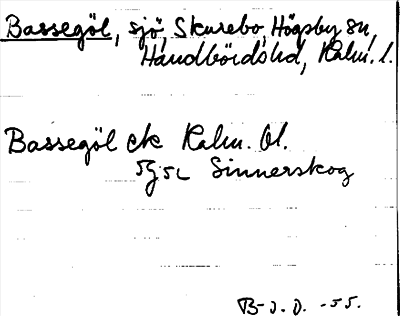 Bassegöl, sjö, Skurebo, Högsby sn,
Handbörds hd, Kalm. l.
Bassegöl ek Kalm. bl.
5g5c Sinnerskog
B-J.D. -55.